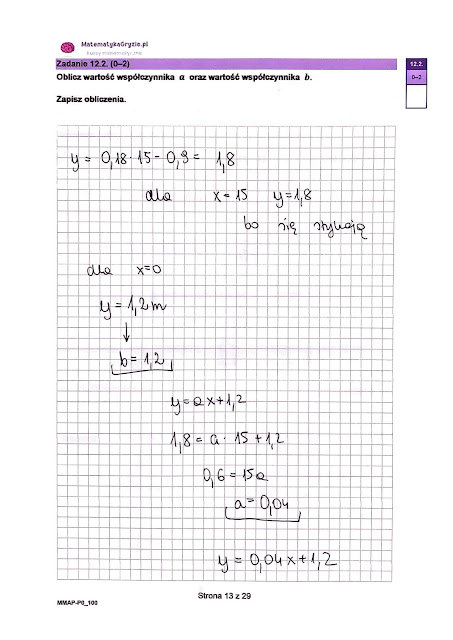 MatematykaGryzie.pl
kursy matematyczne
Zadanie 12.2. (0–2)
12.2.
Oblicz wartość współczynnika a oraz wartość współczynnika b.
0–2
Zapisz obliczenia.
y = 0,18 · 15 - 0,9 = 1,8
dla x = 15 y = 1,8
bo się stykają
dla x=0
y = 1,2 m
↓
b = 1,2
y = ax + 1,2
1,8 = a · 15 + 1,2
0,6 = 15a
a = 0,04
y = 0,04x + 1,2
Strona 13 z 29
MMAP-P0_100